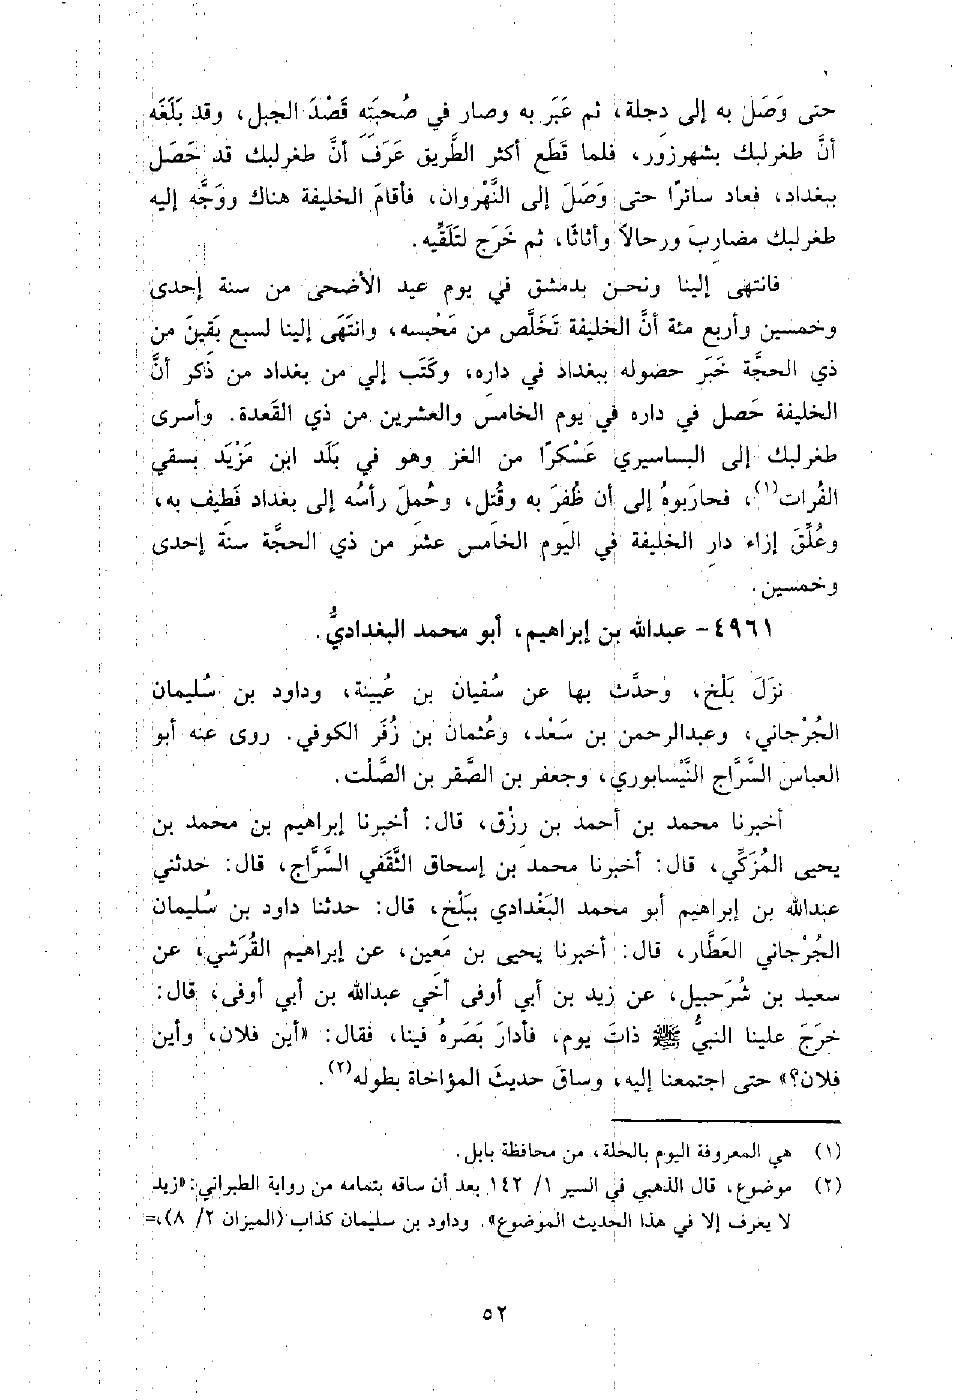 حتى وَصَل به إلى دجلة، ثم عَبَر به وصار في صُحبَتِه قَصْدَ الجبل، وقد بَلَغَه
أنَّ طغرلبك بشهرزور، فلما قَطَع أكثر الطَّريق عَرَفَ أنَّ طغرلبك قد حَصَل
ببغداد، فعاد سائرًا حتى وَصَلَ إلى النَّهْروان، فأقامَ الخليفة هناك ووَجَّه إليه
طغرلبك مضاربَ ورحالاً وأثاثًا، ثم خَرَج لتَلَقِّيه.
فانتهى إلينا ونحن بدمشق في يوم عيد الأضحى من سنة إحدى
وخمسين وأربع مئة أنَّ الخليفة تَخَلَّص من مَحْبسه، وانتَهَى إلينا لسبع بَقِينَ من
ذي الحجَّة خَبَر حضوله ببغداد في داره، وكَتَب إلي من بغداد من ذَكر أنَّ
الخليفة حَصل في داره في يوم الخامس والعشرين من ذي القَعدة. وأسرى
طغرلبك إلى البساسيري عَسْكرًا من الغز وهو في بَلَد ابن مَزْيَد بسقي
الفُرات(١)، فحارَبوهُ إلى أن ظُفرَ به وقُتل، وحُملَ رأسُه إلى بغداد فَطِيف به،
وعُلِّقَ إزاء دار الخليفة في اليوم الخامس عشر من ذي الحجَّة سنة إحدى
وخمسين.
٤٩٦١- عبدالله بن إبراهيم، أبو محمد البغداديُّ.
نزَلَ بَلْخ، وَحدَّث بها عن سُفيان بن عُيينة، وداود بن سُليمان
الجُرْجاني، وعبدالرحمن بن سَعْد، وعُثمان بن زُفَر الكوفي. روى عنه أبو
العباس السَّرَّاج النَّيْسابوري، وجعفر بن الصَّقر بن الصَّلْت.
أخبرنا محمد بن أحمد بن رِزْق، قال: أخبرنا إبراهيم بن محمد بن
يحيى المُزَكِّي، قال: أخبرنا محمد بن إسحاق الثَّقَفي السَّرَّاج، قال: حدثني
عبدالله بن إبراهيم أبو محمد البَغْدادي ببَلْخ، قال: حدثنا داود بن سُليمان
الجُرْجاني العَطَّار، قال: أخبرنا يحيى بن مَعِين، عن إبراهيم القُرَشي، عن
سعيد بن شُرَحبيل، عن زيد بن أبي أوفى أخي عبدالله بن أبي أوفى، قال:
خرَجَ علينا النبيُّ ﷺ ذاتَ يوم، فأدارَ بَصَرهُ فينا، فقال: «أين فلان، وأين
فلان؟» حتى اجتمعنا إليه، وساقَ حديثَ المؤاخاة بطوله(٢).
(١) هي المعروفة اليوم بالحلة، من محافظة بابل.
(٢) موضوع، قال الذهبي في السير ١/ ١٤٢ بعد أن ساقه بتمامه من رواية الطبراني: «زيد
لا يعرف إلا في هذا الحديث الموضوع». وداود بن سليمان كذاب (الميزان ٢/ ٨)،=
٥٢